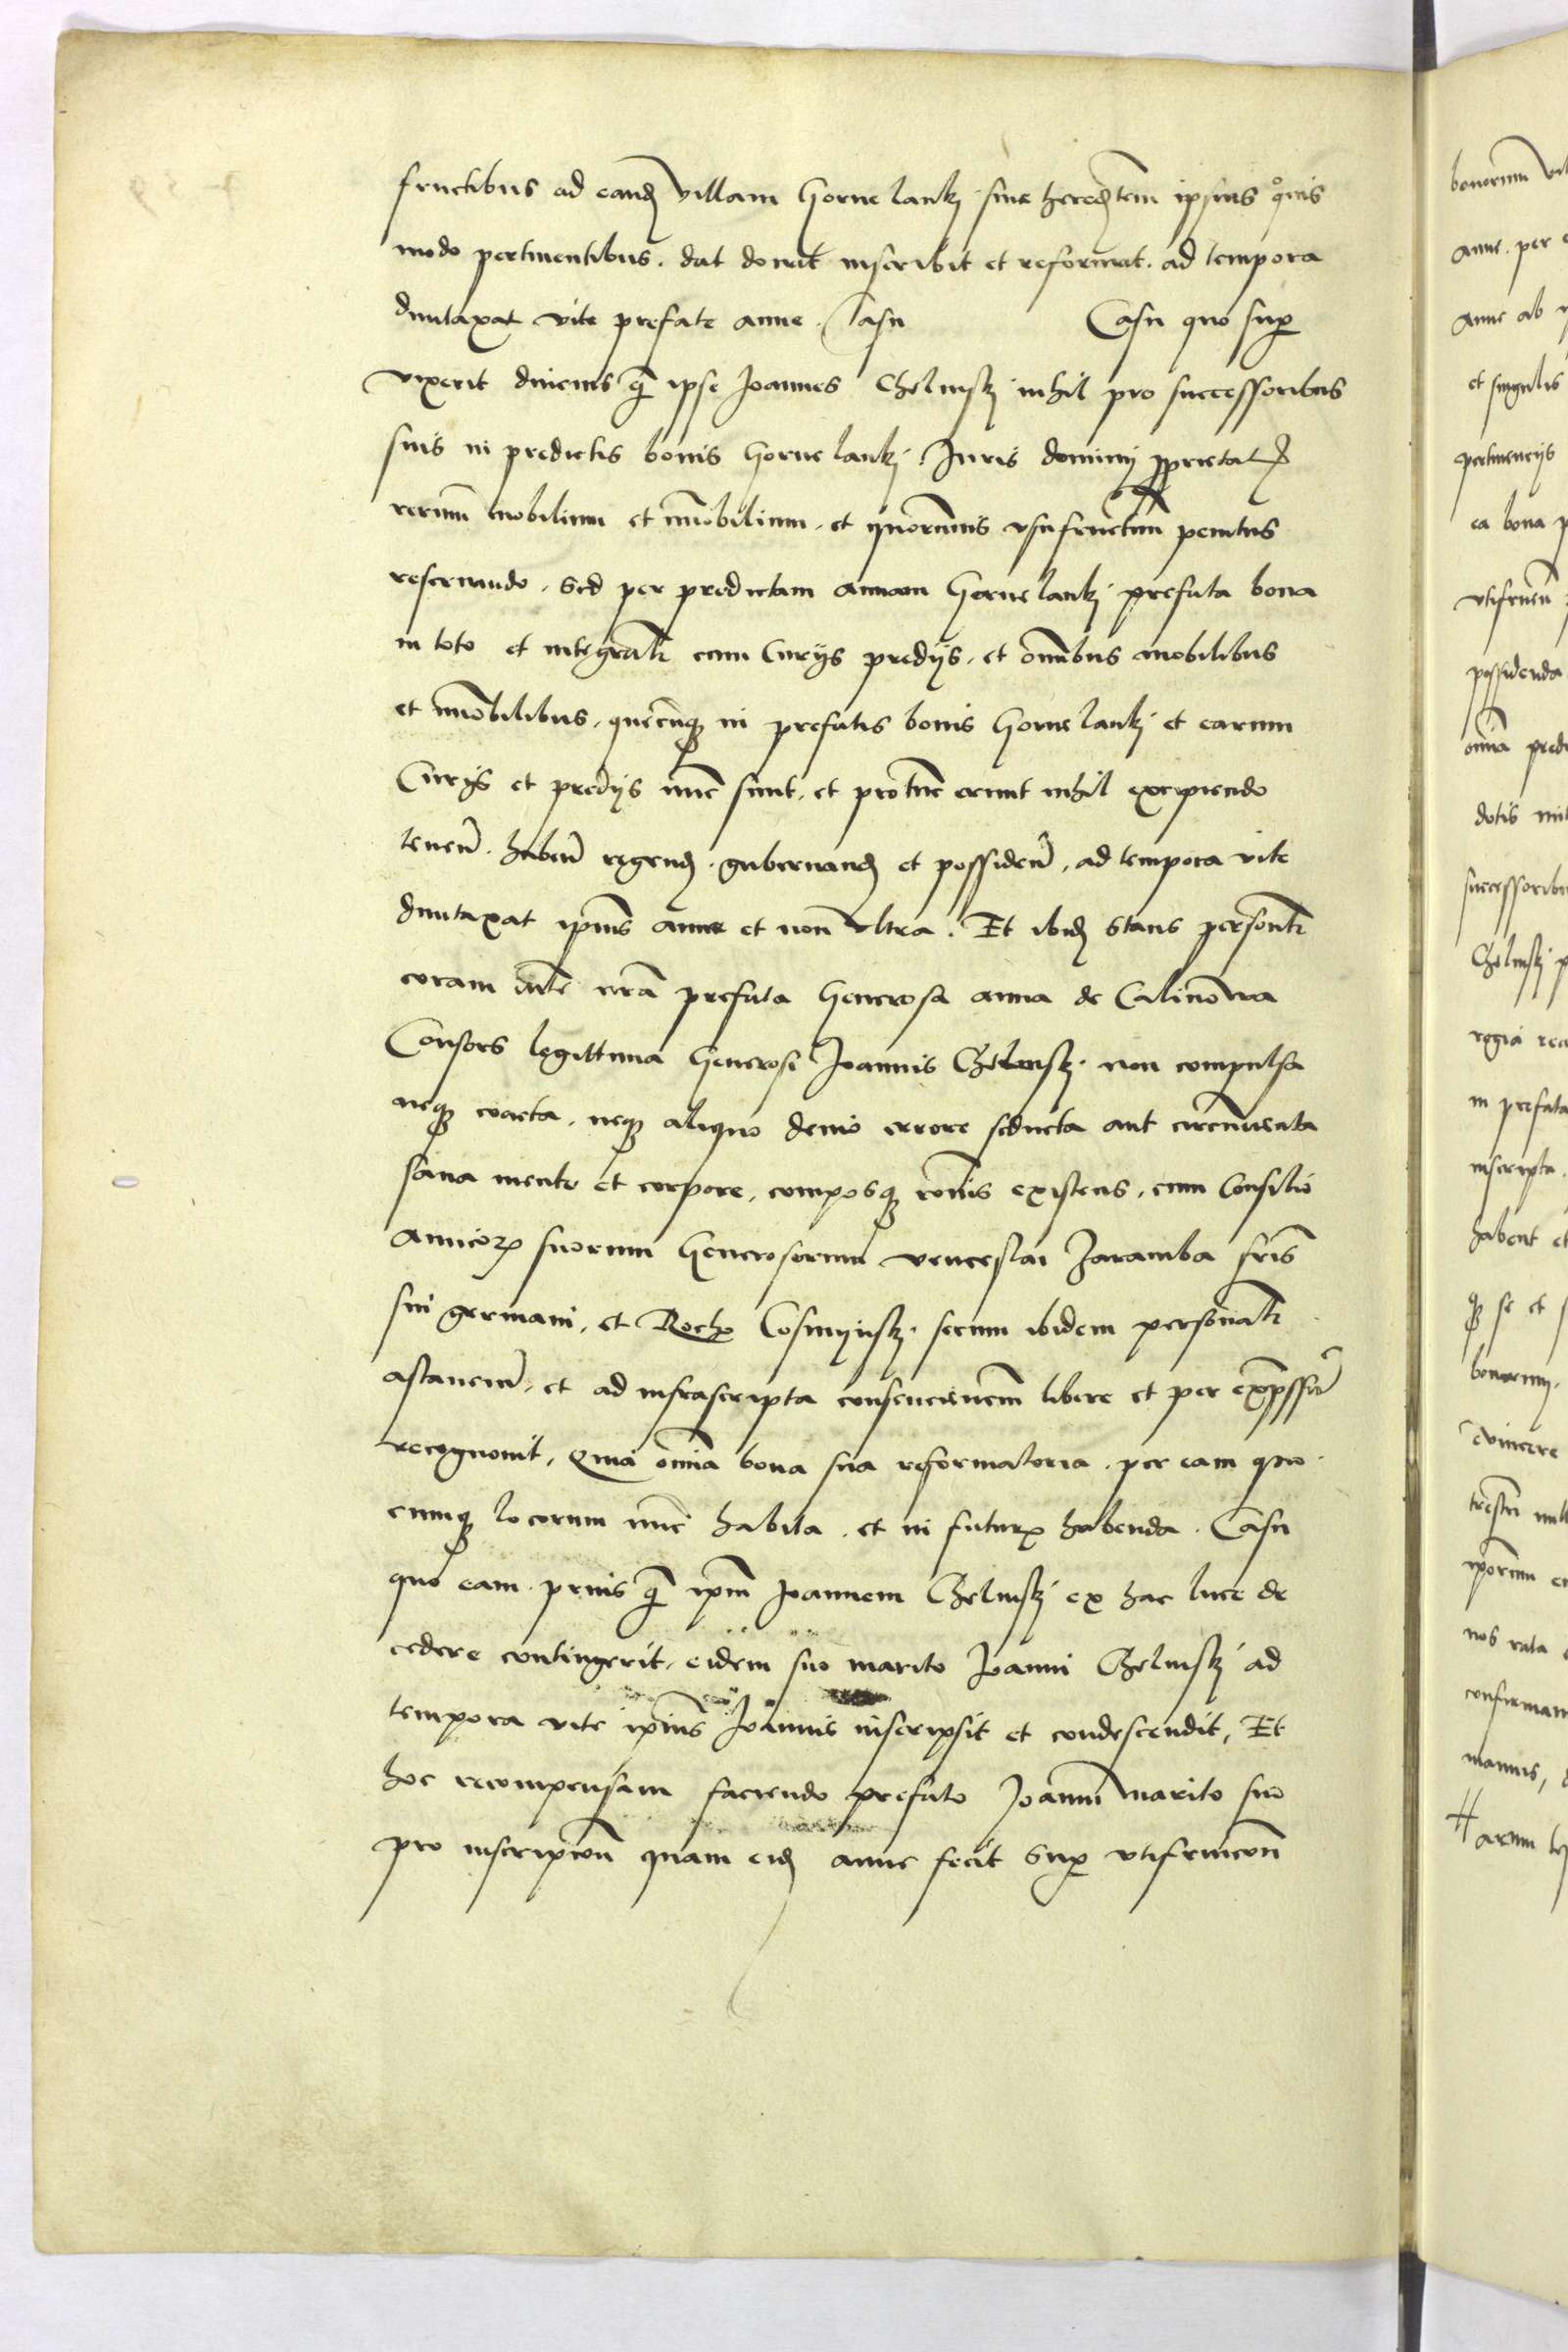 fructibus ad eand villam Gorne lanki sive heredtem ipsius quis
modo pertinentibus. dat donat inscribit et reformat. ad tempora
duntaxat vite prefate anne. Casu Casu quo sup
vixerit diucius q ipse Joannes Chelmski nihil pro successoribus
suis in predictis bonis Gorne lanki Juris dominij pprietat
rerum mobilium et imobilium. et quorumvis usufructum penitus
reservando. Sed per predictam annam Gorne lanki prefata bona
in toto et integralr cum Curijs predijs. et omibus mobilibus
et imobilibus. quecunq in prefatis bonis Gorne lanki et earum
Curijs et predijs nunc sunt. et protunc erunt nihil excipiendo
tenen. haben regend. gubernand et possiden. ad tempora vite
duntaxat ipius anne et non ultra. Et ibid stans personlr
coram Mte nra prefata Generosa anna de Calinowa
Consors legittima Generosi Joannis Chelmski non compulsa
neq coacta. neq aliquo devio errore seducta aut circumventa
sana mente et corpore. composq ronis existens. cum Consilio
amicor suorum Generosorum venceslai Zaramba fris
sui germani. et Roch Cosmijnski secum ibidem personalr
astancium. et ad infrascripta consenciencium libere et per expssum
recognovit. Quia omia bona sua reformatoria. per eam quo
cunq locorum nunc habita. et in futur habenda. Casu
quo eam. prius q ipm Joannem Chelmski ex hac luce de
cedere contingerit. eidem suo marito Joanni Chelmski ad
tempora vite ipius Joannis inscripsit et condescendit. Et
hoc recompensam faciendo prefato Joanni marito suo
pro inscripcion quam eid anne fecit Sup utifruicion
bonorum
anne. per
anne ab
et singulis
pertinencijs
ea bona
utifruen
possidenda
omia
dotis
successoribus
Chelmski
regia
in prefata
inscripta.
habent et
q se et
bonorum.
evincere
iporum
nos rata
mannus,
Harum